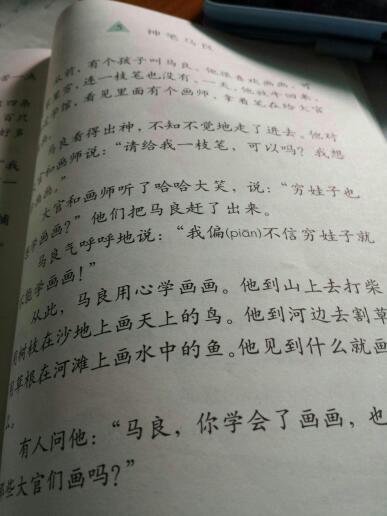 5 神笔马良
从前，有个孩子叫马良。他很喜欢画画，可
里穷，连一枝笔也没有。一天，他放牛回来，
学馆，看见里面有个画师，拿着笔在给大官
画画。
马良看得出神，不知不觉地走了进去。他对
大官和画师说：“请给我一枝笔，可以吗？我想
大官和画师听了哈哈大笑，说：“穷娃子也
学画画？”他们把马良赶了出来。
马良气呼呼地说：“我偏(piān)不信穷娃子就
不能学画画！”
从此，马良用心学画画。他到山上去打柴
用树枝在沙地上画天上的鸟。他到河边去割草
用草根在河滩上画水中的鱼。他见到什么就画
么。
有人问他：“马良，你学会了画画，也
那些大官们画吗？”
一点
四条
百只
好多
“我